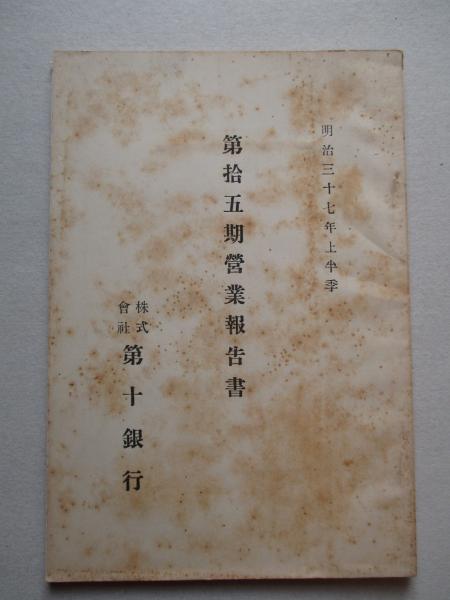 明治三十七年上半季
第拾五期營業報告書
株式會社第十銀行